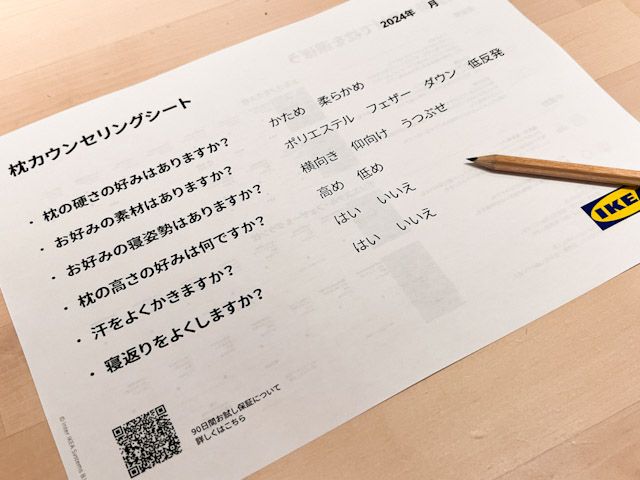 2024年 月
枕カウンセリングシート
・ 枕の硬さの好みはありますか? かため 柔らかめ
・ お好みの素材はありますか? ポリエステル フェザー ダウン 低反発
・ お好みの寝姿勢はありますか? 横向き 仰向け うつぶせ
・ 枕の高さの好みは何ですか? 高め 低め
・ 汗をよくかきますか? はい いいえ
・ 寝返りをよくしますか? はい いいえ
IKE
90日間お試し保証について
詳しくはこちら
© Inter IKEA Systems B